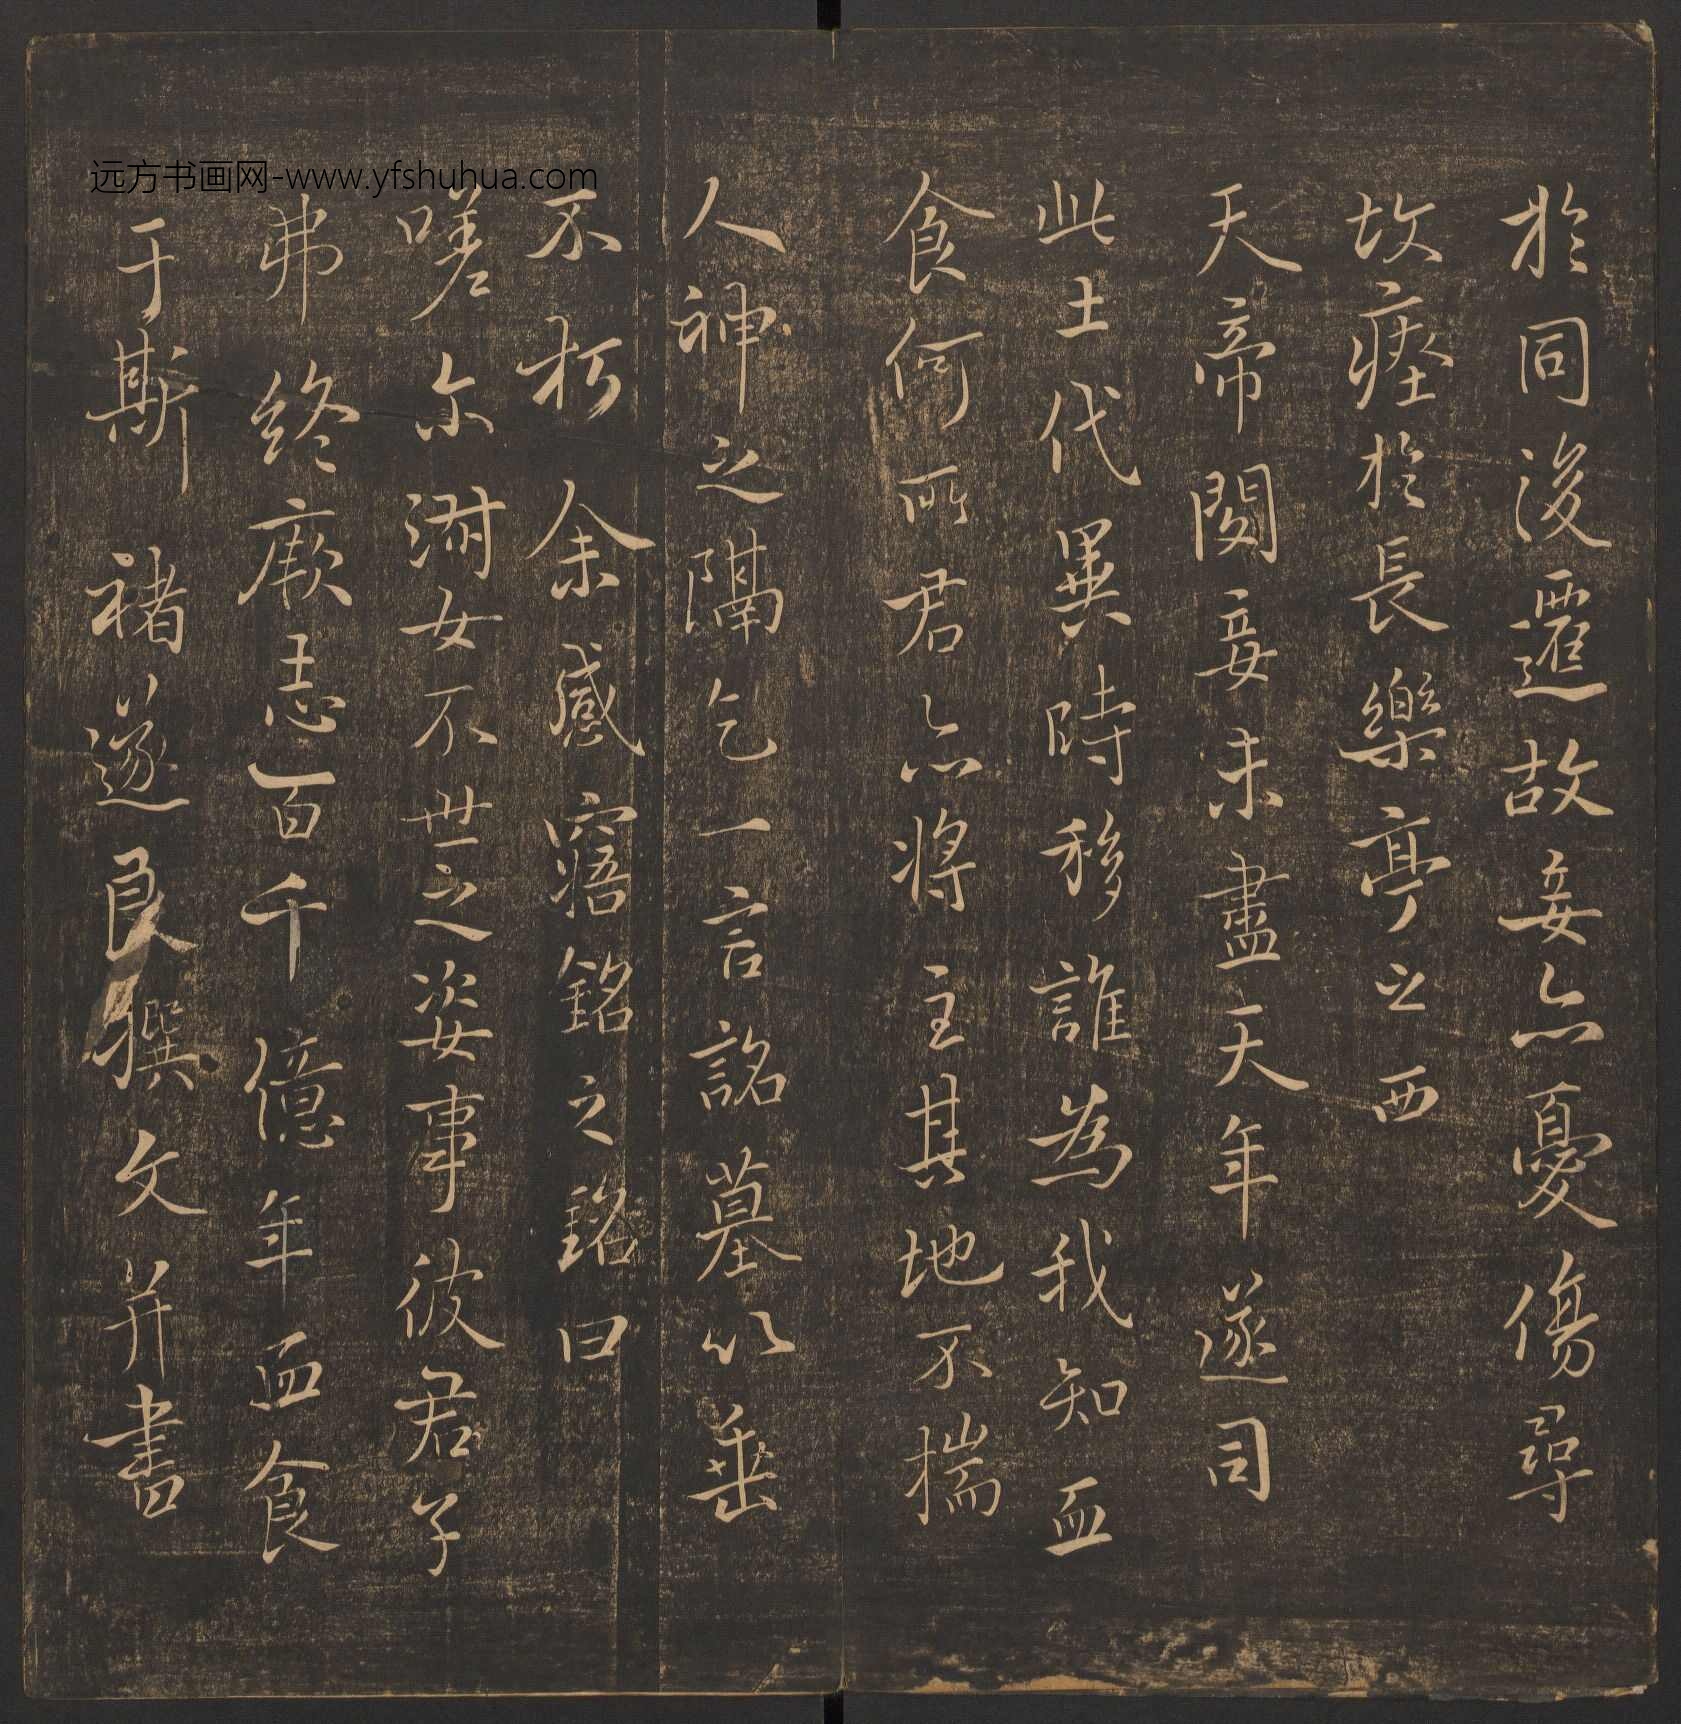 远方书画网-www.yfshuhua.com
於同後遷故妾亦憂傷尋
故瘞於長樂亭之西
天帝閔妾未盡天年遂司
此土代異時移誰為我知血
食何所君亦將主其地不揣
人神之隔乞一言誌墓以垂
不朽余感寤銘之銘曰
嗟尔淑女不世之姿事彼君子
弗終厥志百千億年血食
于斯褚遂良撰文并書